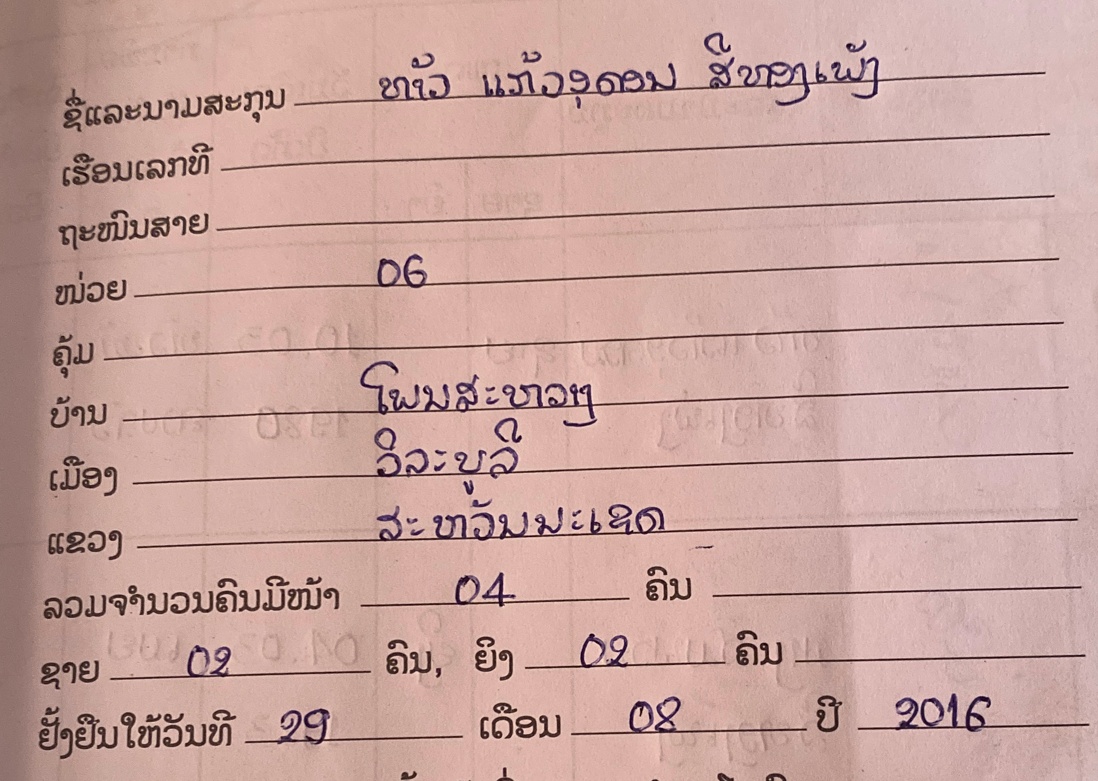 ຊື່ແລະນາມສະກຸນ ທ້າວ ແກ້ວອຸດອນ ສີທອງເພັງ
ເຮືອນເລກທີ
ຖະໜົນສາຍ
ໜ່ວຍ 06
ຄຸ້ມ
ບ້ານ ໂພນສະຫວາງ
ເມືອງ ວິລະບູລີ
ແຂວງ ສະຫວັນນະເຂດ
ລວມຈຳນວນຄົນມີໜ້າ 04 ຄົນ
ຊາຍ 02 ຄົນ, ຍິງ 02 ຄົນ
ຢັ້ງຢືນໃຫ້ວັນທີ 29 ເດືອນ 08 ປີ 2016